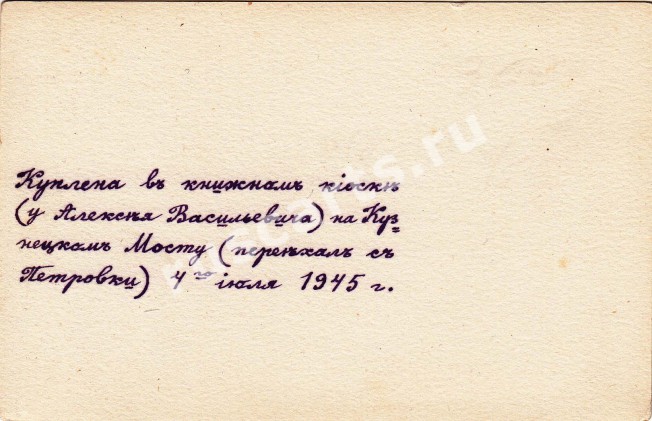 Куплена въ книжномъ кіоскѣ
(у Алексѣя Васильевича) на Куз-
нецкомъ Мосту (переѣхалъ съ
Петровки) 4го іюля 1945 г.
ruscarts.ru